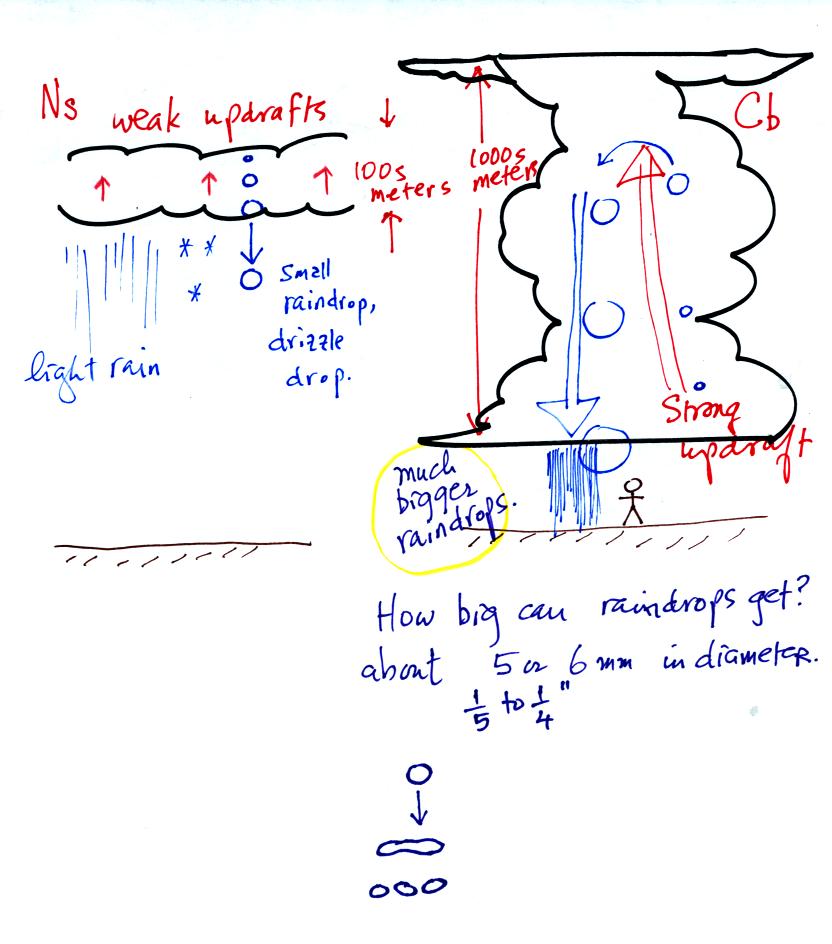 Ns
weak updrafts
100s
meters
light rain
Small
raindrop,
drizzle
drop.
Cb
1000s
meters
Strong
updraft
much
bigger
raindrops.
How big can raindrops get?
about 5 or 6 mm in diameter.
1/5 to 1/4"